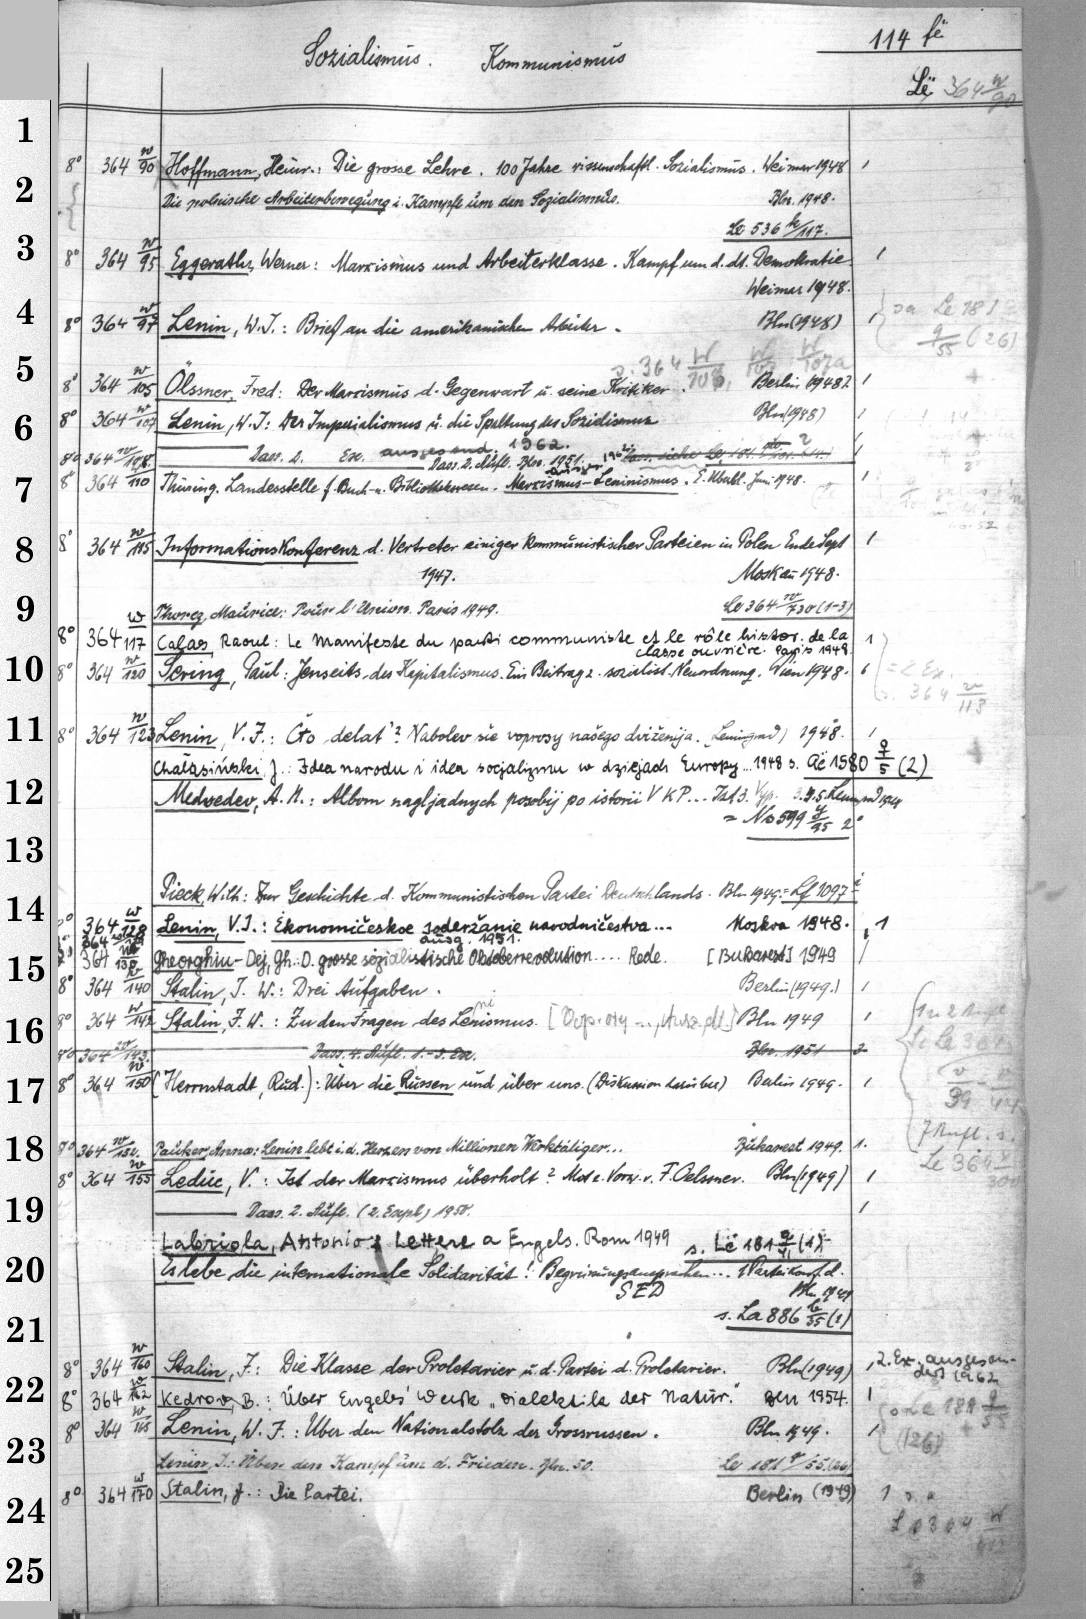 114 fë
Sozialismus. Kommunismus
Lë 364 w/90
1
8° 364 w/90 Hoffmann, Heinr.: Die grosse Lehre. 100 Jahre wissenschaftl. Sozialismus. Weimar 1948 1
2
Die polnische Arbeiterbewegung i. Kampfe um den Sozialismus. Bln. 1948.
Le 536 /117.
3
8° 364 w/95 Eggerath, Werner: Marxismus und Arbeiterklasse. Kampf um d. dt. Demokratie. 1
Weimar 1948.
4
8° 364 w/97 Lenin, W.I.: Brief an die amerikanischen Arbeiter. Bln (1948) 1
sa Le 181
9/55 (26)
5
s. 364 w/108, w/107a
8° 364 w/105 Ölssner, Fred: Der Marxismus d. Gegenwart u. seine Kritiker. Berlin 1948 1
6
8° 364 w/107 Lenin, W.I: Der Imperialismus u. die Spaltung des Sozialismus Bln (1948) 1
Dass. 2. Ex. ausgesond. 1962.
8° 364 w/108. Dass. 2. Aufl. Bln. 1951. 1
7
8° 364 110 Thüring. Landesstelle f. Buch- u. Bibliothekswesen. Marxismus-Leninismus. Juni 1948. 1
8
8° 364 w/115 Informationskonferenz d. Vertreter einiger kommunistischer Parteien in Polen Ende Sept 1
1947. Moskau 1948.
9
Thorez, Maurice: Pour l'Union. Paris 1949. Le 364 w/730 (1-3)
8° 364 w/117 Calas, Raoul: Le Manifeste du parti communiste et le rôle histor. de la 1
classe ouvrière. Paris 1948.
10
8° 364 w/120 Sering, Paul: Jenseits des Kapitalismus. Ein Beitrag z. sozialist. Neuordnung. Wien 1948.
= 2 Ex.
s. 364 w/113
11
8° 364 w/123 Lenin, V.I.: Čto delat'? Nabolevšie voprosy našego dviženija. (Leningrad) 1948. 1
Chałasiński, J.: Idea narodu i idea socjalizmu w dziejach Europy... 1948 s. Ač 1580 9/5 (2)
12
Medvedev, A. N.: Albom nagljadnych posobij po istorii VKP... Izd 3. Vyp.
= No 599 9/95 2°
13
14
Pieck, Wilh: Zur Geschichte d. Kommunistischen Partei Deutschlands. Bln 1949. = Lf 1097
8° 364 w/128 Lenin, V.I.: Ėkonomičeskoe soderžanie narodničestva... Moskva 1948. 1
ausg. 1951.
15
364 w/130 Gheorghiu-Dej, Gh.: D. grosse sozialistische Oktoberrevolution.... Rede. [Bukarest] 1949
8° 364 w/140 Stalin, J. W.: Drei Aufgaben. Berlin (1949.) 1
16
8° 364 w/142 Stalin, J. W.: Zu den Fragen des Leninismus. Bln 1949 1
8° 364 w/143. Dass. 4. Aufl. 1.-3. Ex. Bln. 1951 3
17
8° 364 w/150 (Herrnstadt, Rud.): Über die Russen und über uns. (Diskussion darüber) Berlin 1949. 1
7 Aufl. s.
Le 364 w/300
18
8° 364 w/152. Pauker, Anna: Lenin lebt i.d. Herzen von Millionen Werktätiger... Bukarest 1949. 1.
8° 364 w/155 Leduc, V.: Ist der Marxismus überholt? Mit e. Vorw. v. F. Oelssner. Bln (1949) 1
19
Dass. 2. Aufl. (2. Expl.) 1950. 1
Labriola, Antonio: Lettere a Engels. Rom 1949 s. Lë 181 9/41 (1)
20
Es lebe die internationale Solidarität! Begrüssungsansprachen... 1 Parteikonf. d.
SED Bln 1949
21
s. La 886 b/35 (1)
8° 364 w/160 Stalin, J: Die Klasse der Proletarier u. d. Partei d. Proletarier. Bln (1949) 1 2. Ex. ausgeson-
dert 1962
22
8° 364 w/162 Kedrov, B.: Über Engels' Werk "Dialektik der Natur". Bln 1954. 1
s Le 181 9/55
(26)
8° 364 w/165 Lenin, W. I.: Über den Nationalstolz der Grossrussen. Bln 1949. 1
23
Lenin, I.: Über den Kampf um d. Frieden. Bln. 50. Le 181 9/55. (26)
8° 364 w/170 Stalin, J.: Die Partei. Berlin (1949) 1
24
25